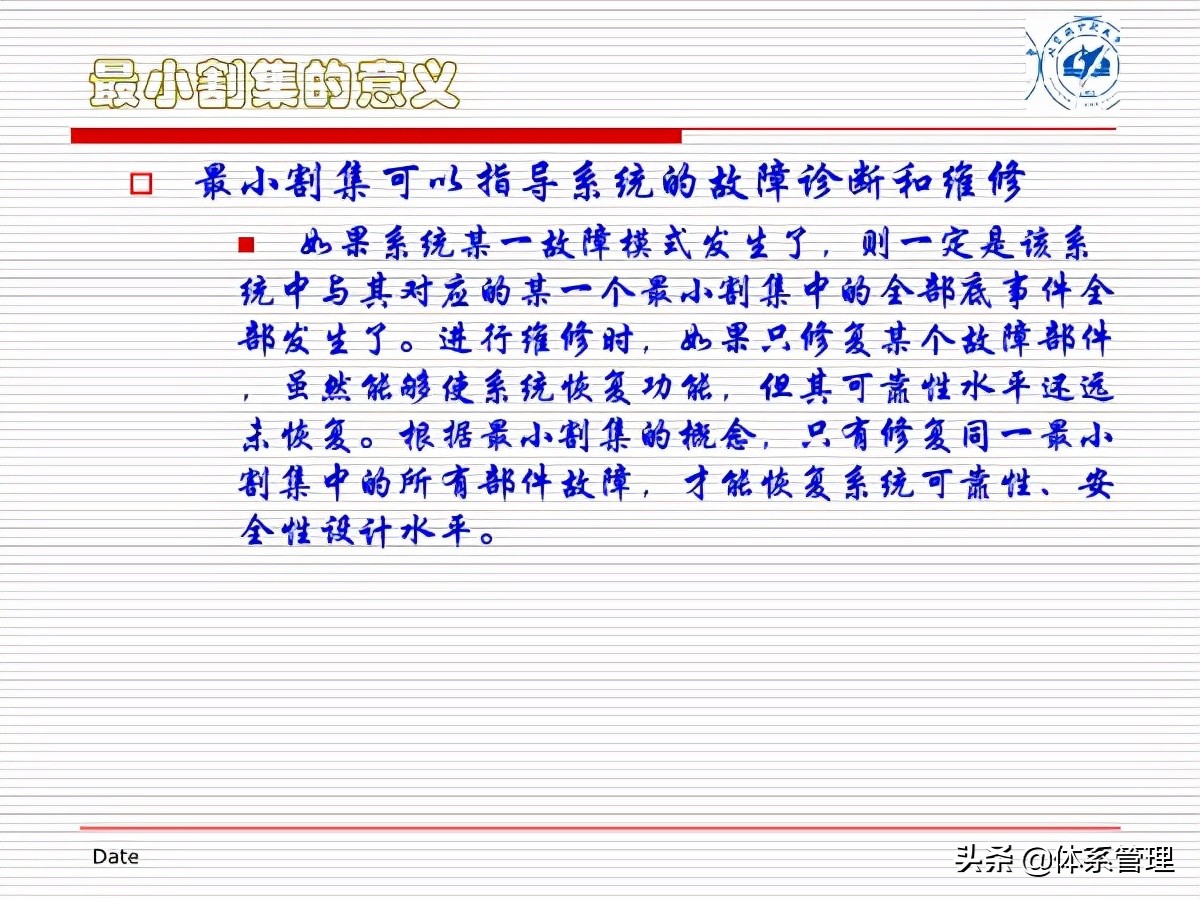 最小割集的意义
最小割集可以指导系统的故障诊断和维修
如果系统某一故障模式发生了，则一定是该系
统中与其对应的某一个最小割集中的全部底事件全
部发生了。进行维修时，如果只修复某个故障部件
，虽然能够使系统恢复功能，但其可靠性水平还远
未恢复。根据最小割集的概念，只有修复同一最小
割集中的所有部件故障，才能恢复系统可靠性、安
全性设计水平。
Date
头条 @体系管理